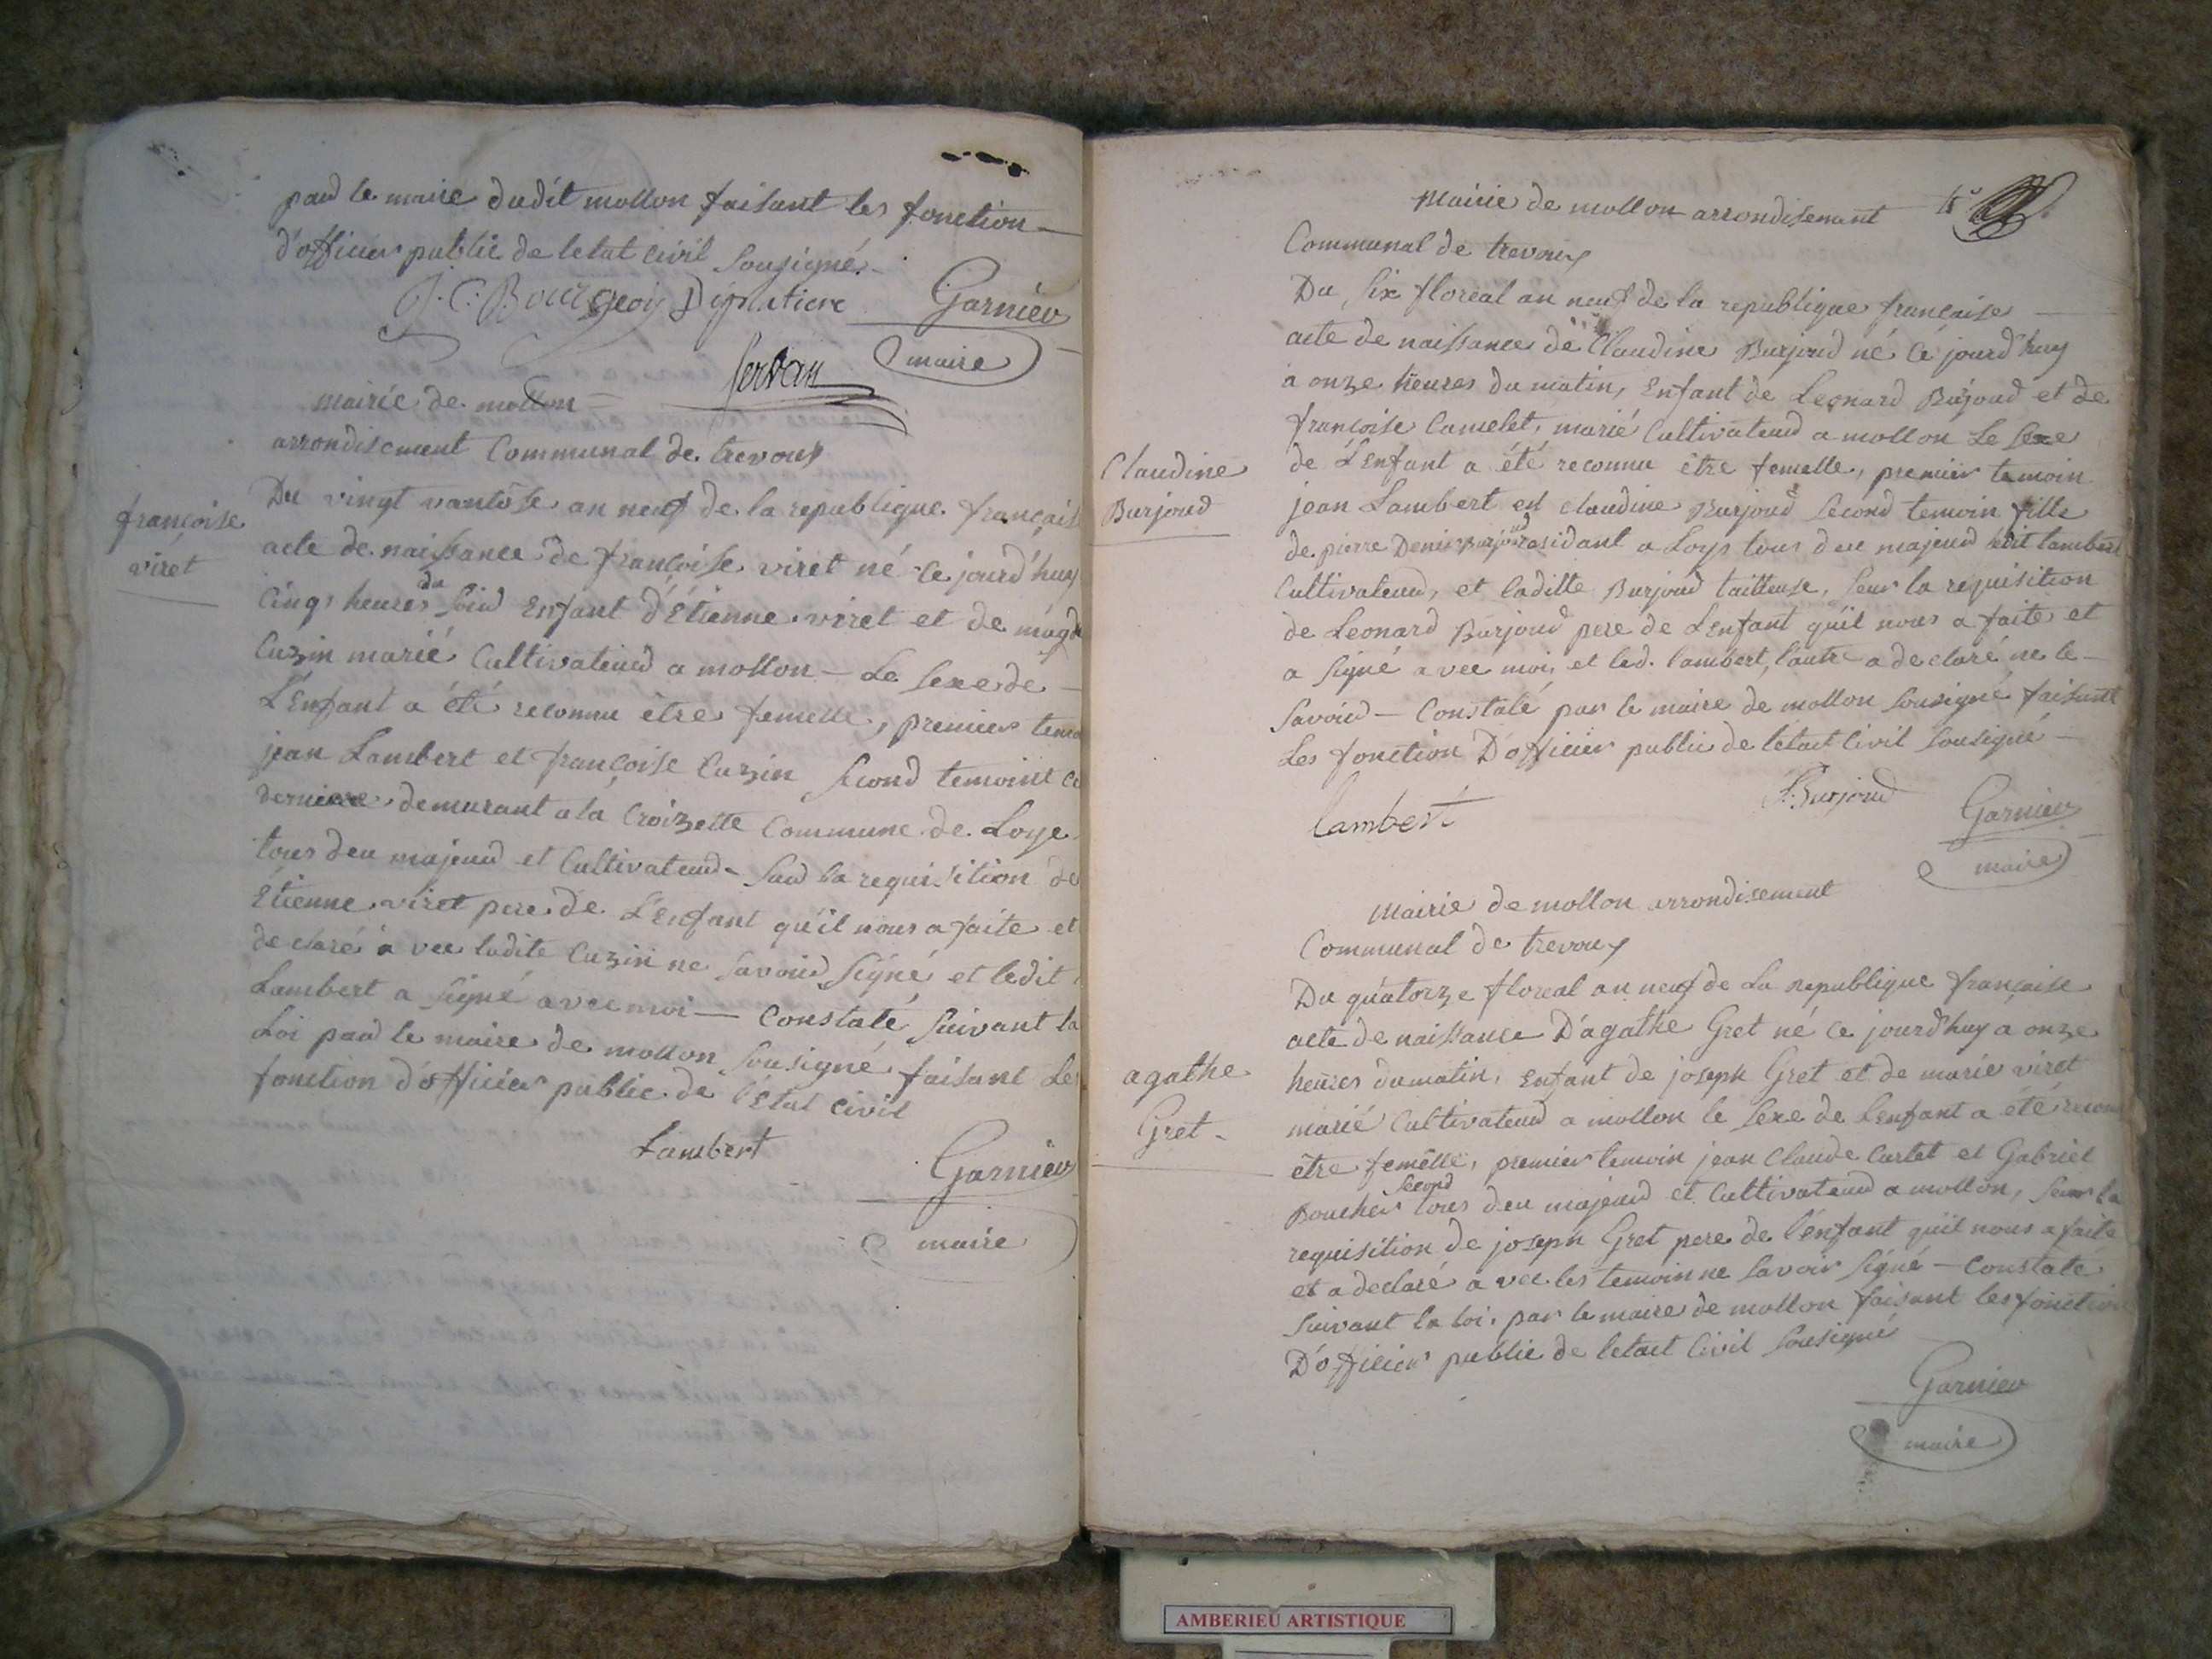 paud le maire dudit mollon faisant les fonction
d'officier public de letat civil sousigné
J. C. Bourgeois
Garnier
maire
Servan
Mairie de mollon
arrondisement Communal de trevoux
françoise
viret
Du vingt vantôse an neuf de la republique français
acte de naissance de françoise viret né ce jourd'huy
Cinqs heures du soid Enfant d'Étienne viret et de magd
Cuzin marié Cultivateud a mollon — Le sexe de
L'Enfant a été reconnu être femelle, premier temo
jean Lambert et françoise Cuzin second temoint ce
derniere demurant a la Croizette Commune de Loye
tous deu majeud et Cultivateud. Sud la requisition de
Étienne viret pere de L'Enfant qu'il nous a faite et
declaré a vec ladite Cuzin ne savoid signé et ledit
Lambert a signé avec moi — Constaté suivant la
Loi paud le maire de mollon sousigné faisant Les
fonction d'officier public de l'État civil
Lambert
Garnier
maire
Mairie de mollon arrondisement
Communal de trevoux
Du six floreal an neuf de la republique française
acte de naissance de Claudine Burjoud né ce jourd'huy
a onze heures du matin, Enfant de Leonard Burjoud et de
françoise Camelet, marié Cultivateud a mollon Le sexe
Claudine
Burjoud
de L'Enfant a été reconnu être femelle, premier temoin
jean Lambert et claudine Burjoud second temoin fille
de pierre Denis Burjoud residant a Loys tous deu majeud ledit lambert
Cultivateud, et laditte Burjoud tailleuse, seur la requisition
de Leonard Burjoud pere de L'Enfant qu'il nous a faite et
a signé avec moi, et led. lambert, l'autre a declaré ne le
savoid — Constaté par le maire de mollon sousigné faisant
Les fonction D'officier public de l'état Civil sousigné —
Lambert
Burjoud
Garnier
maire
Mairie de mollon arrondisement
Communal de trevoux
Du quatorze floreal an neuf de La republique française
acte de naissance D'agathe Gret né ce jourd'huy a onze
agathe
Gret
heures du matin, Enfant de joseph Gret et de marie viret
marié Cultivateud a mollon le sexe de l'enfant a été recon
être femelle, premier temoin jean Claude Curtet et Gabriel
Boucher second tous deu majeud et Cultivateud a mollon, seur la
requisition de joseph Gret pere de l'enfant qu'il nous a faite
et a declaré a vec les temoin ne savoir signé — Constaté
suivant la loi, par le maire de mollon faisant les fonction
D'officier public de letat Civil sousigné
Garnier
maire
AMBERIEU ARTISTIQUE